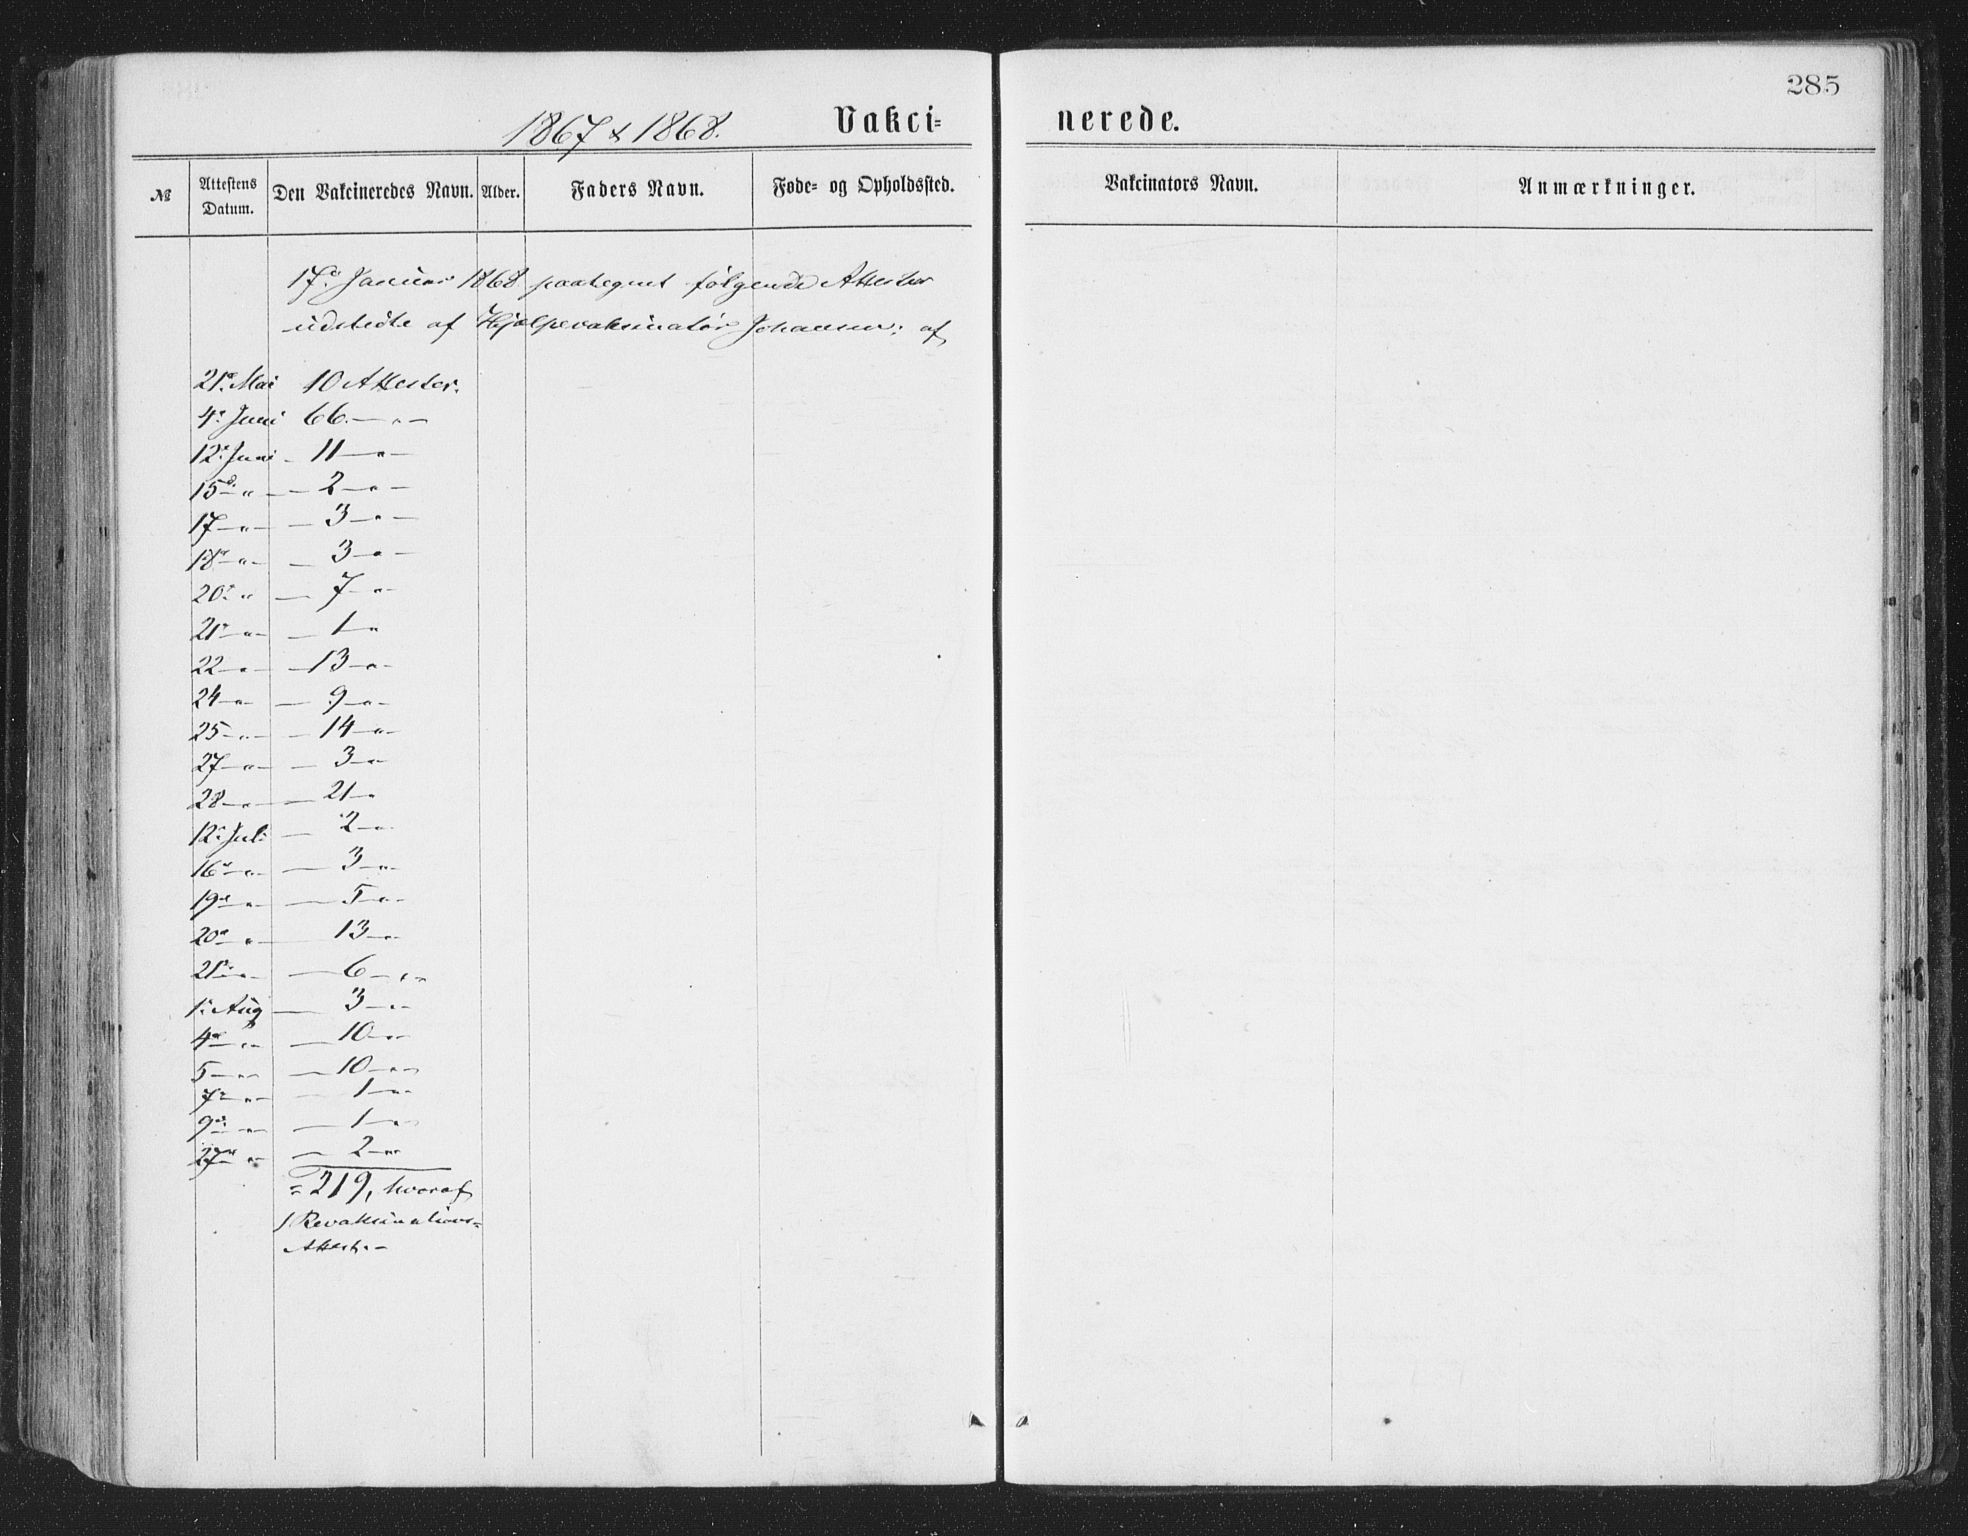 285
1867 & 1868. Vakci= nerede.
№ Attestens Datum. Den Vakcineredes Navn. Alder. Faders Navn. Føde= og Opholdssted. Vakcinators Navn. Anmærkninger.
17de Januar 1868 paategnet følgende Attester
udstedte af Hjælpevaksinatør Johansen; af
21de Mai 10 Attester.
4de Juni 66 — " —
12te Juni — 11 — " —
15de — " — — 2 — " —
17 — " — — 3 — " —
18de — " — — 3 — " —
20de " — 7 — " —
21de — " — — 1 — "
22 — " — — 13 — " —
24 — " — — 9 — " —
25 — " — — 14 — " —
27 — " — — 3 — " —
28 — " — — 21 — "
12te Juli — 2 — " —
16de — " — — 3 — " —
19de — " — — 5 — " —
20de — " — — 13 — " —
21de — " — — 6 — " —
1ste Aug — 3 — " —
4de — " — — 10 — " —
5 — " — — 10 — " —
7de — " — — 1 — " —
9de — " — — 1 — " —
27de " — 2 — " —
= 219, hvoraf
1 Revaksinations=
Attest. —